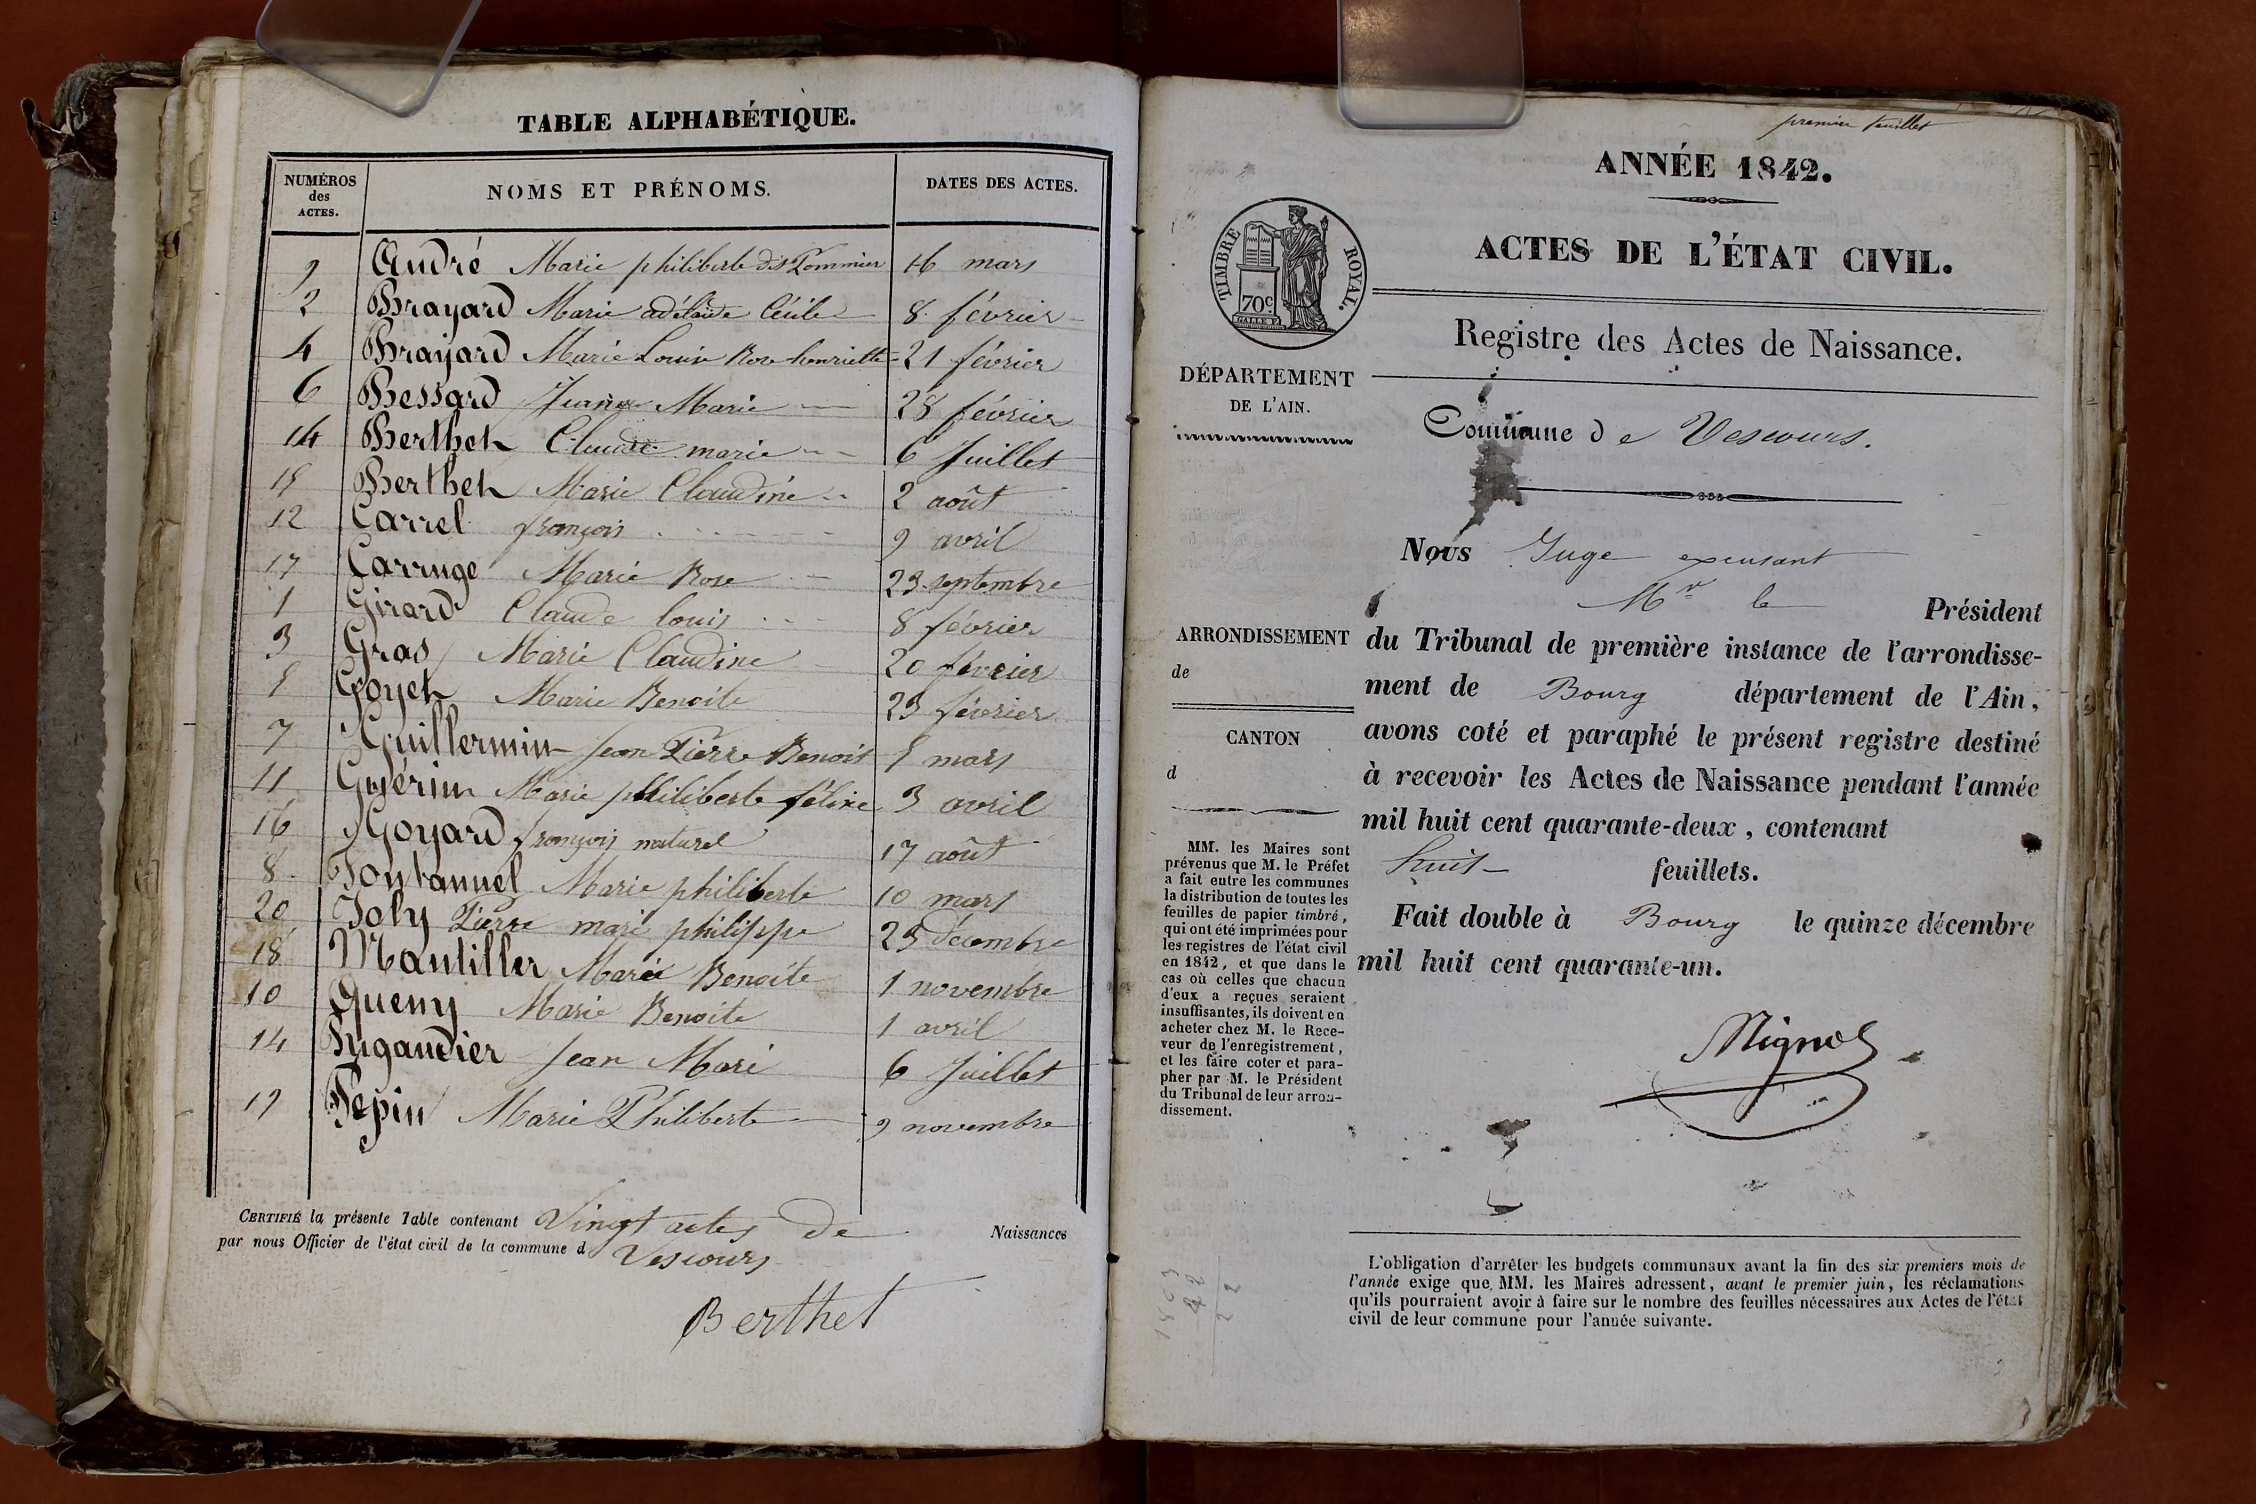 TABLE ALPHABÉTIQUE.
NUMÉROS des ACTES. NOMS ET PRÉNOMS. DATES DES ACTES.
9 André Marie philiberte dit Pommier 16 mars
2 Brayard Marie adélaïde Cécile 8 février
4 Brayard Marie Louise Rose henriette 21 février
6 Bessard Jeanne Marie 28 février
14 Berthet Claude marie 6 Juillet
15 Berthet Marie Claudine 2 août
12 Carrel françois 9 avril
17 Carruge Marie Rose 23 septembre
1 Girard Claude louis 8 février
3 Gras Marie Claudine 20 février
5 Goyet Marie Benoite 23 février
7 Guillermin Jean Pierre Benoit 5 mars
11 Guérin Marie philiberte féline 3 avril
16 Goyard françois naturel 17 août
8 Jontannel Marie philiberte 10 mars
20 Joly Pierre marie philippe 25 décembre
18 Mantiller Marie Benoite 1 novembre
10 Queny Marie Benoite 1 avril
14 Pugaudier Jean Marie 6 Juillet
19 Pepin Marie Philiberte 9 novembre
CERTIFIÉ la présente Table contenant Vingt actes de Naissances
par nous Officier de l'état civil de la commune d Vescours
Berthet
premier feuillet
ANNÉE 1842.
ACTES DE L'ÉTAT CIVIL.
TIMBRE ROYAL.
70c.
Registre des Actes de Naissance.
DÉPARTEMENT
DE L'AIN.
Commune de Vescours.
Nous Juge excusant
Mr le Président
ARRONDISSEMENT
de
CANTON
d
du Tribunal de première instance de l'arrondisse-
ment de Bourg département de l'Ain,
avons coté et paraphé le présent registre destiné
à recevoir les Actes de Naissance pendant l'année
mil huit cent quarante-deux, contenant
huit feuillets.
Fait double à Bourg le quinze décembre
mil huit cent quarante-un.
Mignot
MM. les Maires sont
prévenus que M. le Préfet
a fait entre les communes
la distribution de toutes les
feuilles de papier timbré,
qui ont été imprimées pour
les registres de l'état civil
en 1842, et que dans le
cas où celles que chacun
d'eux a reçues seraient
insuffisantes, ils doivent en
acheter chez M. le Rece-
veur de l'enregistrement,
et les faire coter et para-
pher par M. le Président
du Tribunal de leur arron-
dissement.
L'obligation d'arrêter les budgets communaux avant la fin des six premiers mois de
l'année exige que MM. les Maires adressent, avant le premier juin, les réclamations
qu'ils pourraient avoir à faire sur le nombre des feuilles nécessaires aux Actes de l'état
civil de leur commune pour l'année suivante.